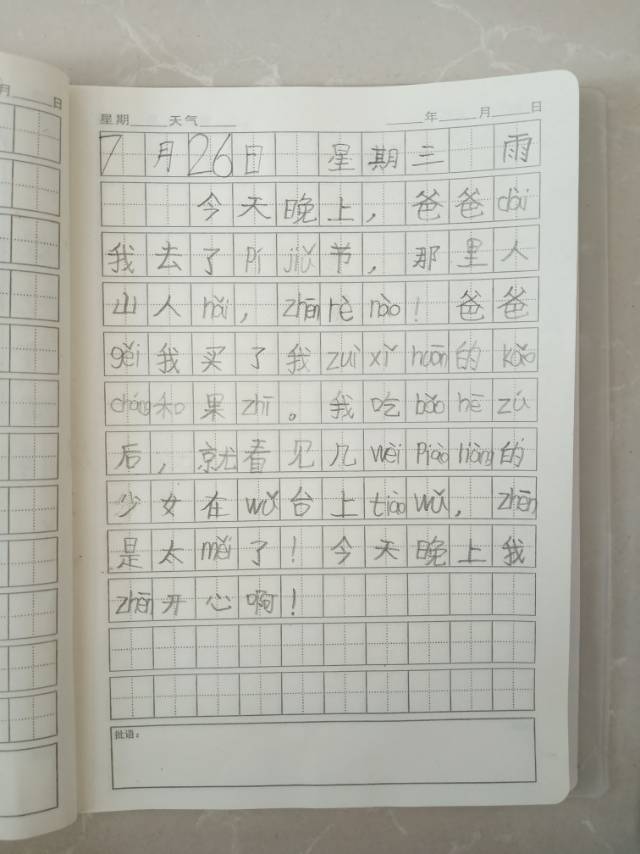 月 日
星期 天气 年 月 日
7月26日 星期三 雨
今天晚上，爸爸dài
我去了pí jiǔ节，那里人
山人hǎi，zhēn rè nào！爸爸
gěi我买了我zuì xǐ huān的kǎo
cháng和果zhī。我吃bǎo hē zú
后，就看见几wèi piào liàng的
少女在wǔ台上tiào wǔ，zhēn
是太měi了！今天晚上我
zhēn开心啊！
批语：